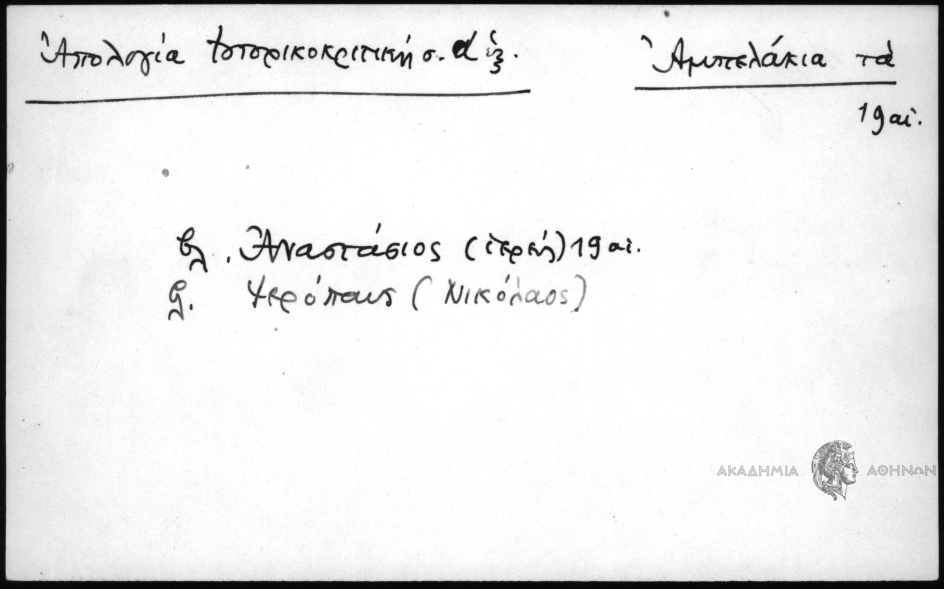 Ἀπολογία Ἱστορικοκριτική σ. α ἑξ.
Ἀμπελάκια τὰ
19 αἰ.
βλ. Ἀναστάσιος (ἱερεύς) 19 αἰ.
βλ. (Νικόλαος)
ΑΚΑΔΗΜΙΑ ΑΘΗΝΩΝ